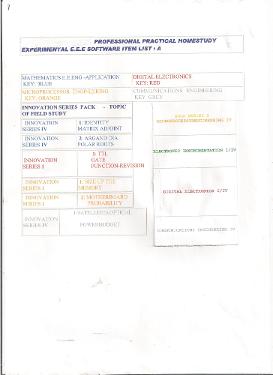 PROFESSIONAL PRACTICAL HOMESTUDY
EXPERIMENTAL E.E.C SOFTWARE ITEM LIST : A
MATHEMATICS E.ENG -APPLICATION
KEY: BLUE
DIGITAL-ELECTRONICS
KEY: RED
MICROPROCESSOR ENGINEERING
KEY: ORANGE
COMMUNICATIONS ENGINEERING
KEY: GREY
INNOVATION SERIES PACK - TOPIC
OF FIELD STUDY
INNOVATION
SERIES IV
1: IDENTITY
MATRIX ADJOINT
INNOVATION
SERIES IV
2: ARGAND DIA
POLAR ROOTS
ELECTRONIC INSTRUMENTATION I/IV
INNOVATION
SERIES I
3: TTL
GATE
FUNCTION-REVISION
INNOVATION
SERIES I
1: SIZE UP THE
MEMORY
DIGITAL ELECTRONICS I/IV
INNOVATION
SERIES I
2: MOTHERBOARD
PROBABILITY
INNOVATION
SERIES IV
1: SATELLITE/OPTICAL
POWER BUDGET
COMMUNICATIONS ENGINEERING IV